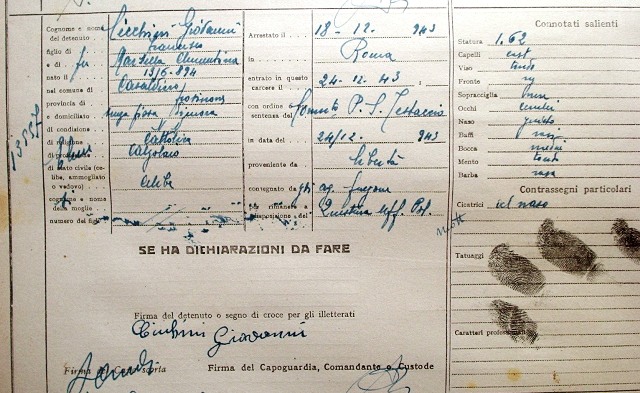 Cognome e nome del detenuto Cicchini Giovanni
figlio di Francesco
e di fu Marsella Clementina
nato il 13/6/894
nel comune di Casalvieri
provincia di Frosinone
e domiciliato
di condizione
di religione Cattolica
di professione Calzolaio
stato civile (celibe, ammogliato o vedovo) celibe
cognome e nome della moglie
numero dei figli
Arrestato il 18-12- 943
in Roma
entrato in questo carcere il 24-12-43
con ordine o sentenza del Commto P.S. Testaccio
in data del 24/12 943
proveniente da libertà
consegnato da gli ag.
per rimanere a disposizione del Questura Uff. Pol.
Connotati salienti
Statura 1.62
Capelli cast
Viso tondo
Fronte
Sopracciglia
Occhi
Naso giusto
Baffi rasi
Bocca media
Mento tondo
Barba rasa
Contrassegni particolari
Cicatrici sul naso
Tatuaggi
Caratteri professionali
SE HA DICHIARAZIONI DA FARE
Firma del detenuto o segno di croce per gli illetterati
Cicchini Giovanni
Firma del Capo scorta
Firma del Capoguardia, Comandante o Custode